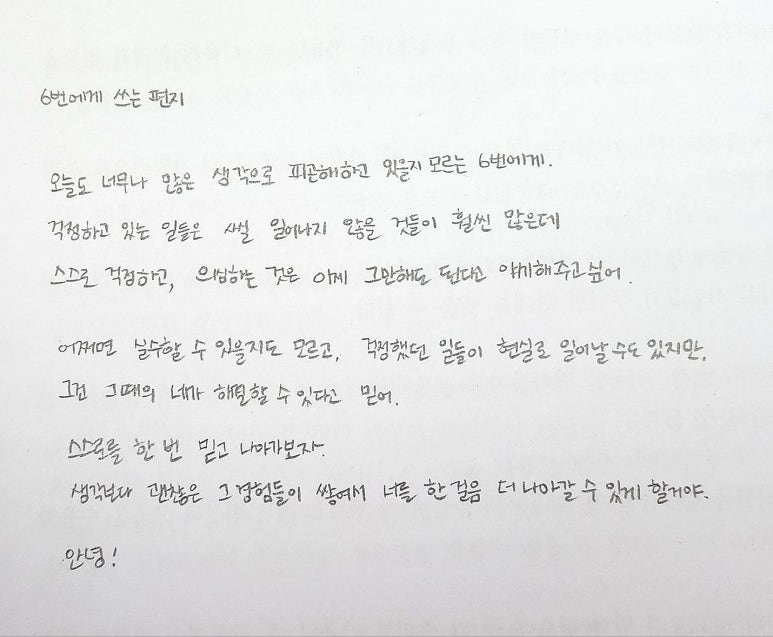 6번에게 쓰는 편지
오늘도 너무나 많은 생각으로 피곤해하고 있을지 모르는 6번에게.
걱정하고 있는 일들은 사실 일어나지 않을 것들이 훨씬 많은데
스스로 걱정하고, 의심하는 것은 이제 그만해도 된다고 얘기해주고싶어.
어쩌면 실수할 수 있을지도 모르고, 걱정했던 일들이 현실로 일어날 수도 있지만,
그건 그때의 네가 해결할 수 있다고 믿어.
스스로를 한 번 믿고 나아가보자.
생각보다 괜찮은 그 경험들이 쌓여서 너를 한 걸음 더 나아갈 수 있게 할거야.
안녕!